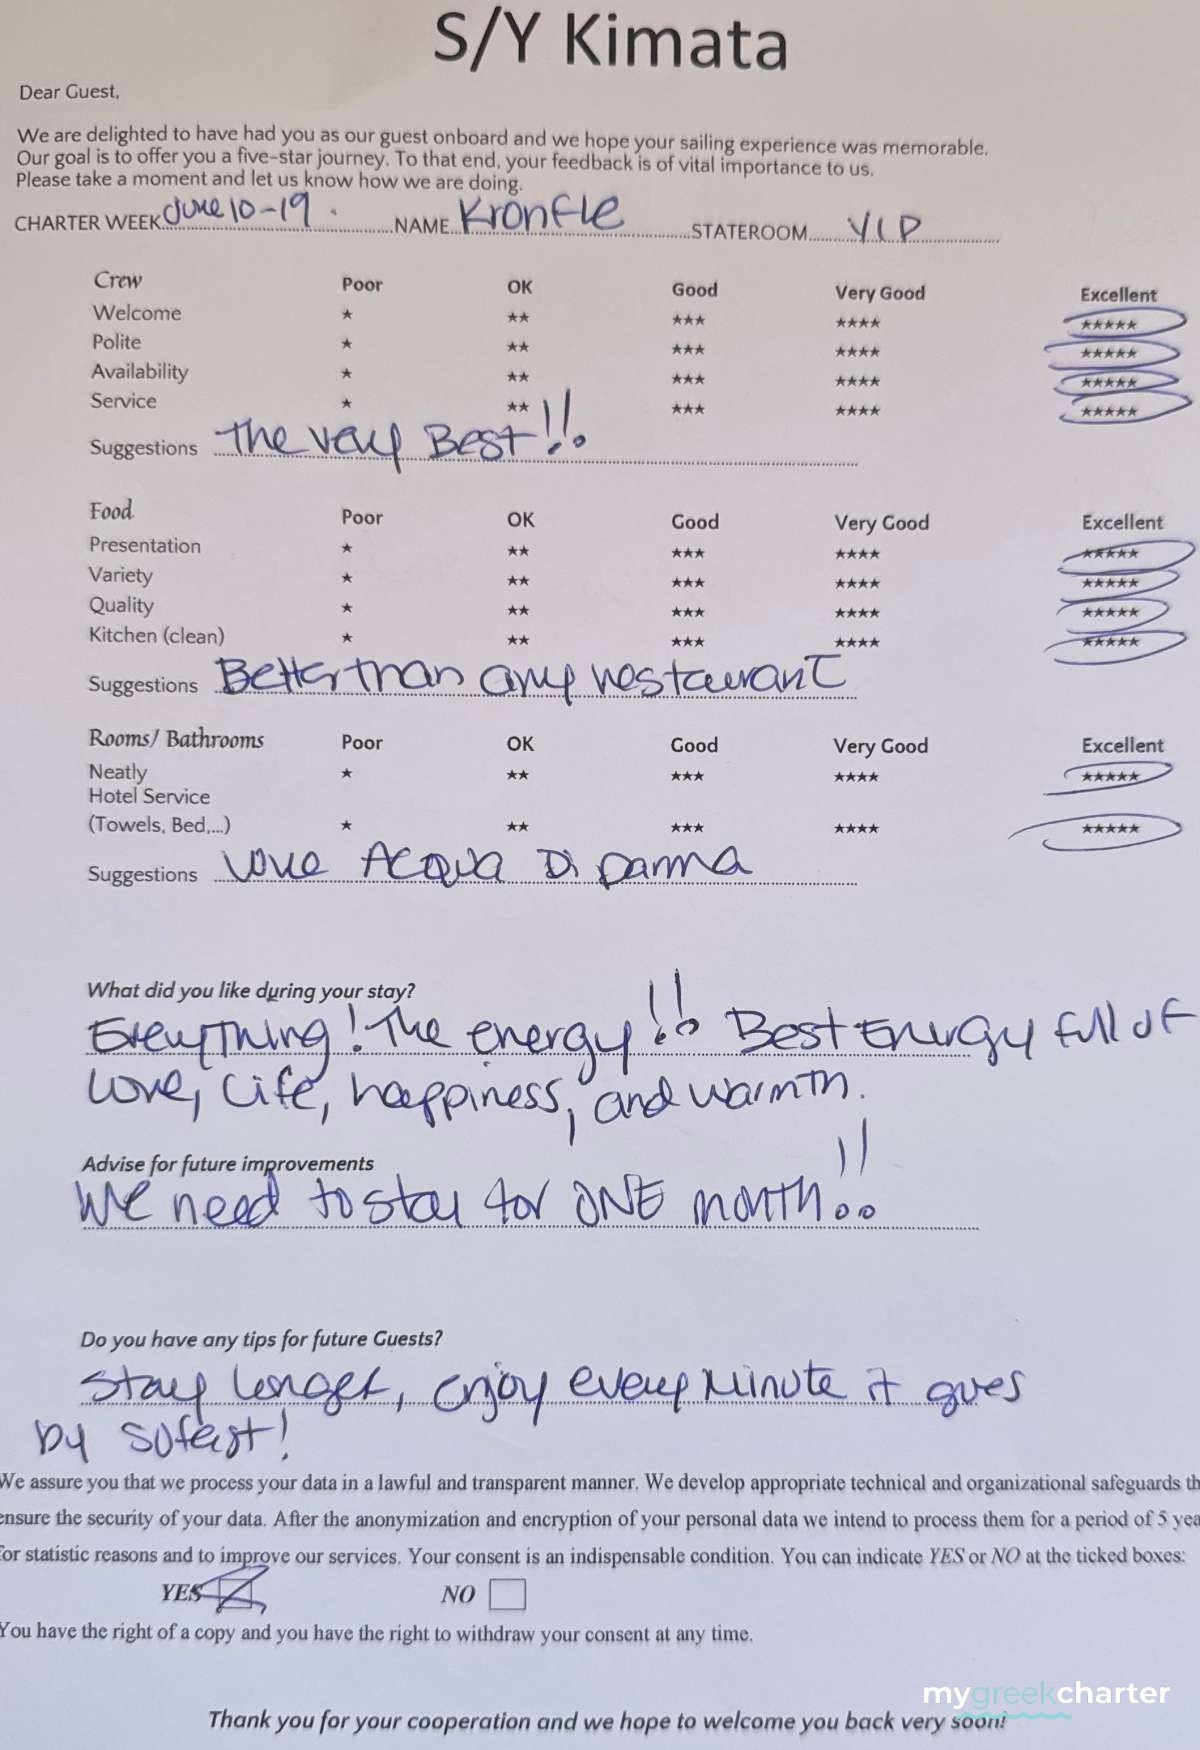 S/Y Kimata
Dear Guest,
We are delighted to have had you as our guest onboard and we hope your sailing experience was memorable.
Our goal is to offer you a five-star journey. To that end, your feedback is of vital importance to us.
Please take a moment and let us know how we are doing.
CHARTER WEEK June 10-19. NAME Kronfle STATEROOM VIP
Crew Poor OK Good Very Good Excellent
Welcome ★ ★★ ★★★ ★★★★ ★★★★★
Polite ★ ★★ ★★★ ★★★★ ★★★★★
Availability ★ ★★ ★★★ ★★★★ ★★★★★
Service ★ ★★ ★★★ ★★★★ ★★★★★
Suggestions The very Best!!
Food Poor OK Good Very Good Excellent
Presentation ★ ★★ ★★★ ★★★★ ★★★★★
Variety ★ ★★ ★★★ ★★★★ ★★★★★
Quality ★ ★★ ★★★ ★★★★ ★★★★★
Kitchen (clean) ★ ★★ ★★★ ★★★★ ★★★★★
Suggestions Better than any restaurant
Rooms/ Bathrooms Poor OK Good Very Good Excellent
Neatly ★ ★★ ★★★ ★★★★ ★★★★★
Hotel Service
(Towels, Bed,...) ★ ★★ ★★★ ★★★★ ★★★★★
Suggestions Love Acqua Di Parma
What did you like during your stay?
Everything! The energy!! Best Energy full of
Love, Life, happiness, and warmth.
Advise for future improvements
We need to stay for ONE month!!
Do you have any tips for future Guests?
Stay longer, enjoy every minute it goes
by so fast!
We assure you that we process your data in a lawful and transparent manner. We develop appropriate technical and organizational safeguards th
ensure the security of your data. After the anonymization and encryption of your personal data we intend to process them for a period of 5 yea
for statistic reasons and to improve our services. Your consent is an indispensable condition. You can indicate YES or NO at the ticked boxes:
YES NO
You have the right of a copy and you have the right to withdraw your consent at any time.
mygreekcharter
Thank you for your cooperation and we hope to welcome you back very soon!